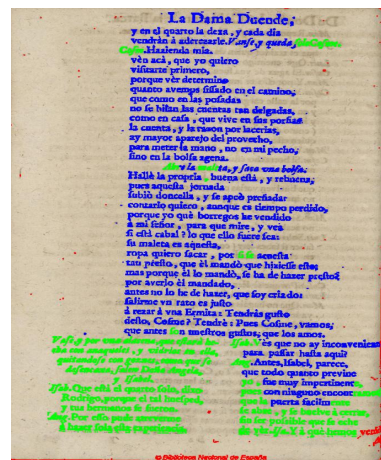 La Dama Duende,
y en el quarto la dexa, y cada dia
vendràn à aderezarle. Vanse, y queda
Hazienda mia.
vèn acà, que yo quiero
visitarte primero,
porque vèr determino
quanto avemos sisado en el camino;
que como en las posadas
no se hilan las cuentas tan delgadas,
como en casa, que vive en sus porfias
la cuenta, y la razon por lacerias,
ay mayor aparejo del provecho,
para meter la mano, no en mi pecho,
sino en la bolsa agena.
la maleta, y saca una bolsa.
Hallè la propria, buena està, y rebuena,
pues aquesta jornada
subiò doncella, y se apeò preñada
contarlo quiero, aunque es tiempo perdido,
porque yo què borregos he vendido
à mi señor, para que mire, y vea
si està cabal? lo que ello fuere sea:
su maleta es aquesta,
ropa quiero sacar, por si se acuesta
tan presto, que èl mandò que hiziesse esto;
mas porque èl lo mandò, se ha de hazer presto?
por averlo èl mandado,
antes no lo he de hazer, que soy criado:
salirme un rato es justo
à rezar à una Ermita: Tendràs gusto
desto, Cosme? Tendrè: Pues Cosme, vamos;
que antes son nuestros gustos, que los amos.
Isab. Que està el quarto solo, dixo
Rodrigo, porque el tal huesped,
y tus hermanos se fueron.
Ang. Por esso pude
Vès que no ay inconveniente
para passar hasta aqui?
Ang. Antes, Isabel, parece,
que todo quanto previne
yo, fue muy impertinente,
pues con ninguno encontramos
que la puerta facilmente
se abre, y se buelve à cerrar,
sin ser possible que se eche
de vèr. Isa. Y à què hemos venido?
© Biblioteca Nacional de España